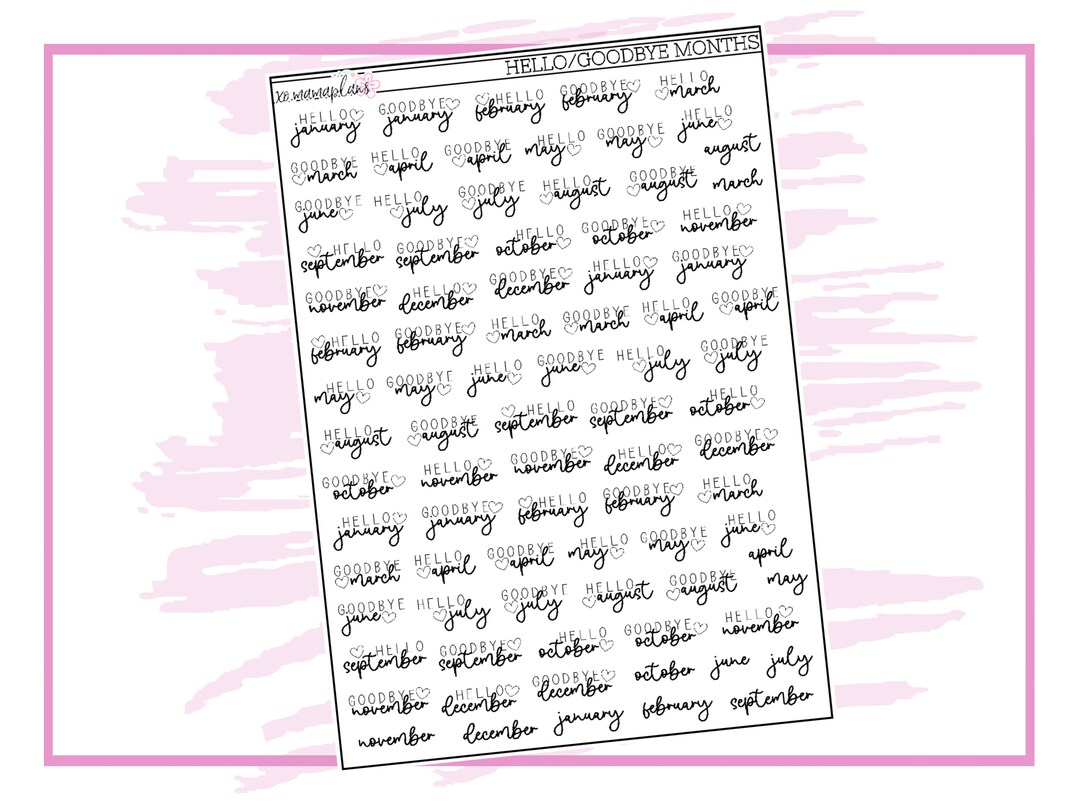 HELLO/GOODBYE MONTHS
xo.mamaplans
HELLO january GOODBYE january HELLO february GOODBYE february HELLO march
GOODBYE march HELLO april GOODBYE april HELLO may GOODBYE may HELLO june
august
GOODBYE june HELLO july GOODBYE july HELLO august GOODBYE august march
HELLO september GOODBYE september HELLO october GOODBYE october HELLO november
GOODBYE november HELLO december GOODBYE december HELLO january GOODBYE january
HELLO february GOODBYE february HELLO march GOODBYE march HELLO april GOODBYE april
HELLO may GOODBYE may HELLO june GOODBYE june HELLO july GOODBYE july
HELLO august GOODBYE august HELLO september GOODBYE september HELLO october
GOODBYE october HELLO november GOODBYE november HELLO december GOODBYE december
HELLO january GOODBYE january HELLO february GOODBYE february HELLO march
GOODBYE march HELLO april GOODBYE april HELLO may GOODBYE may HELLO june
april
GOODBYE june HELLO july GOODBYE july HELLO august GOODBYE august may
HELLO september GOODBYE september HELLO october GOODBYE october HELLO november
GOODBYE november HELLO december GOODBYE december october june july
november december january february september